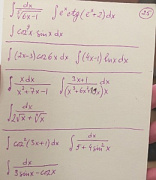 ∫ dx / √(6x-1) ∫ eˣ ctg(eˣ+2) dx 25
∫ cos⁴x sin x dx
∫ (2x-3) cos 6x dx ∫ (4x-1) ln x dx
∫ x dx / (x²+7x-1) ∫ (3x+1) dx
∫ dx / (2√x + ∛x)
∫ cos²(3x+1) dx ∫ dx / (5+4 sin²x)
∫ dx / (3 sin x - cos x)